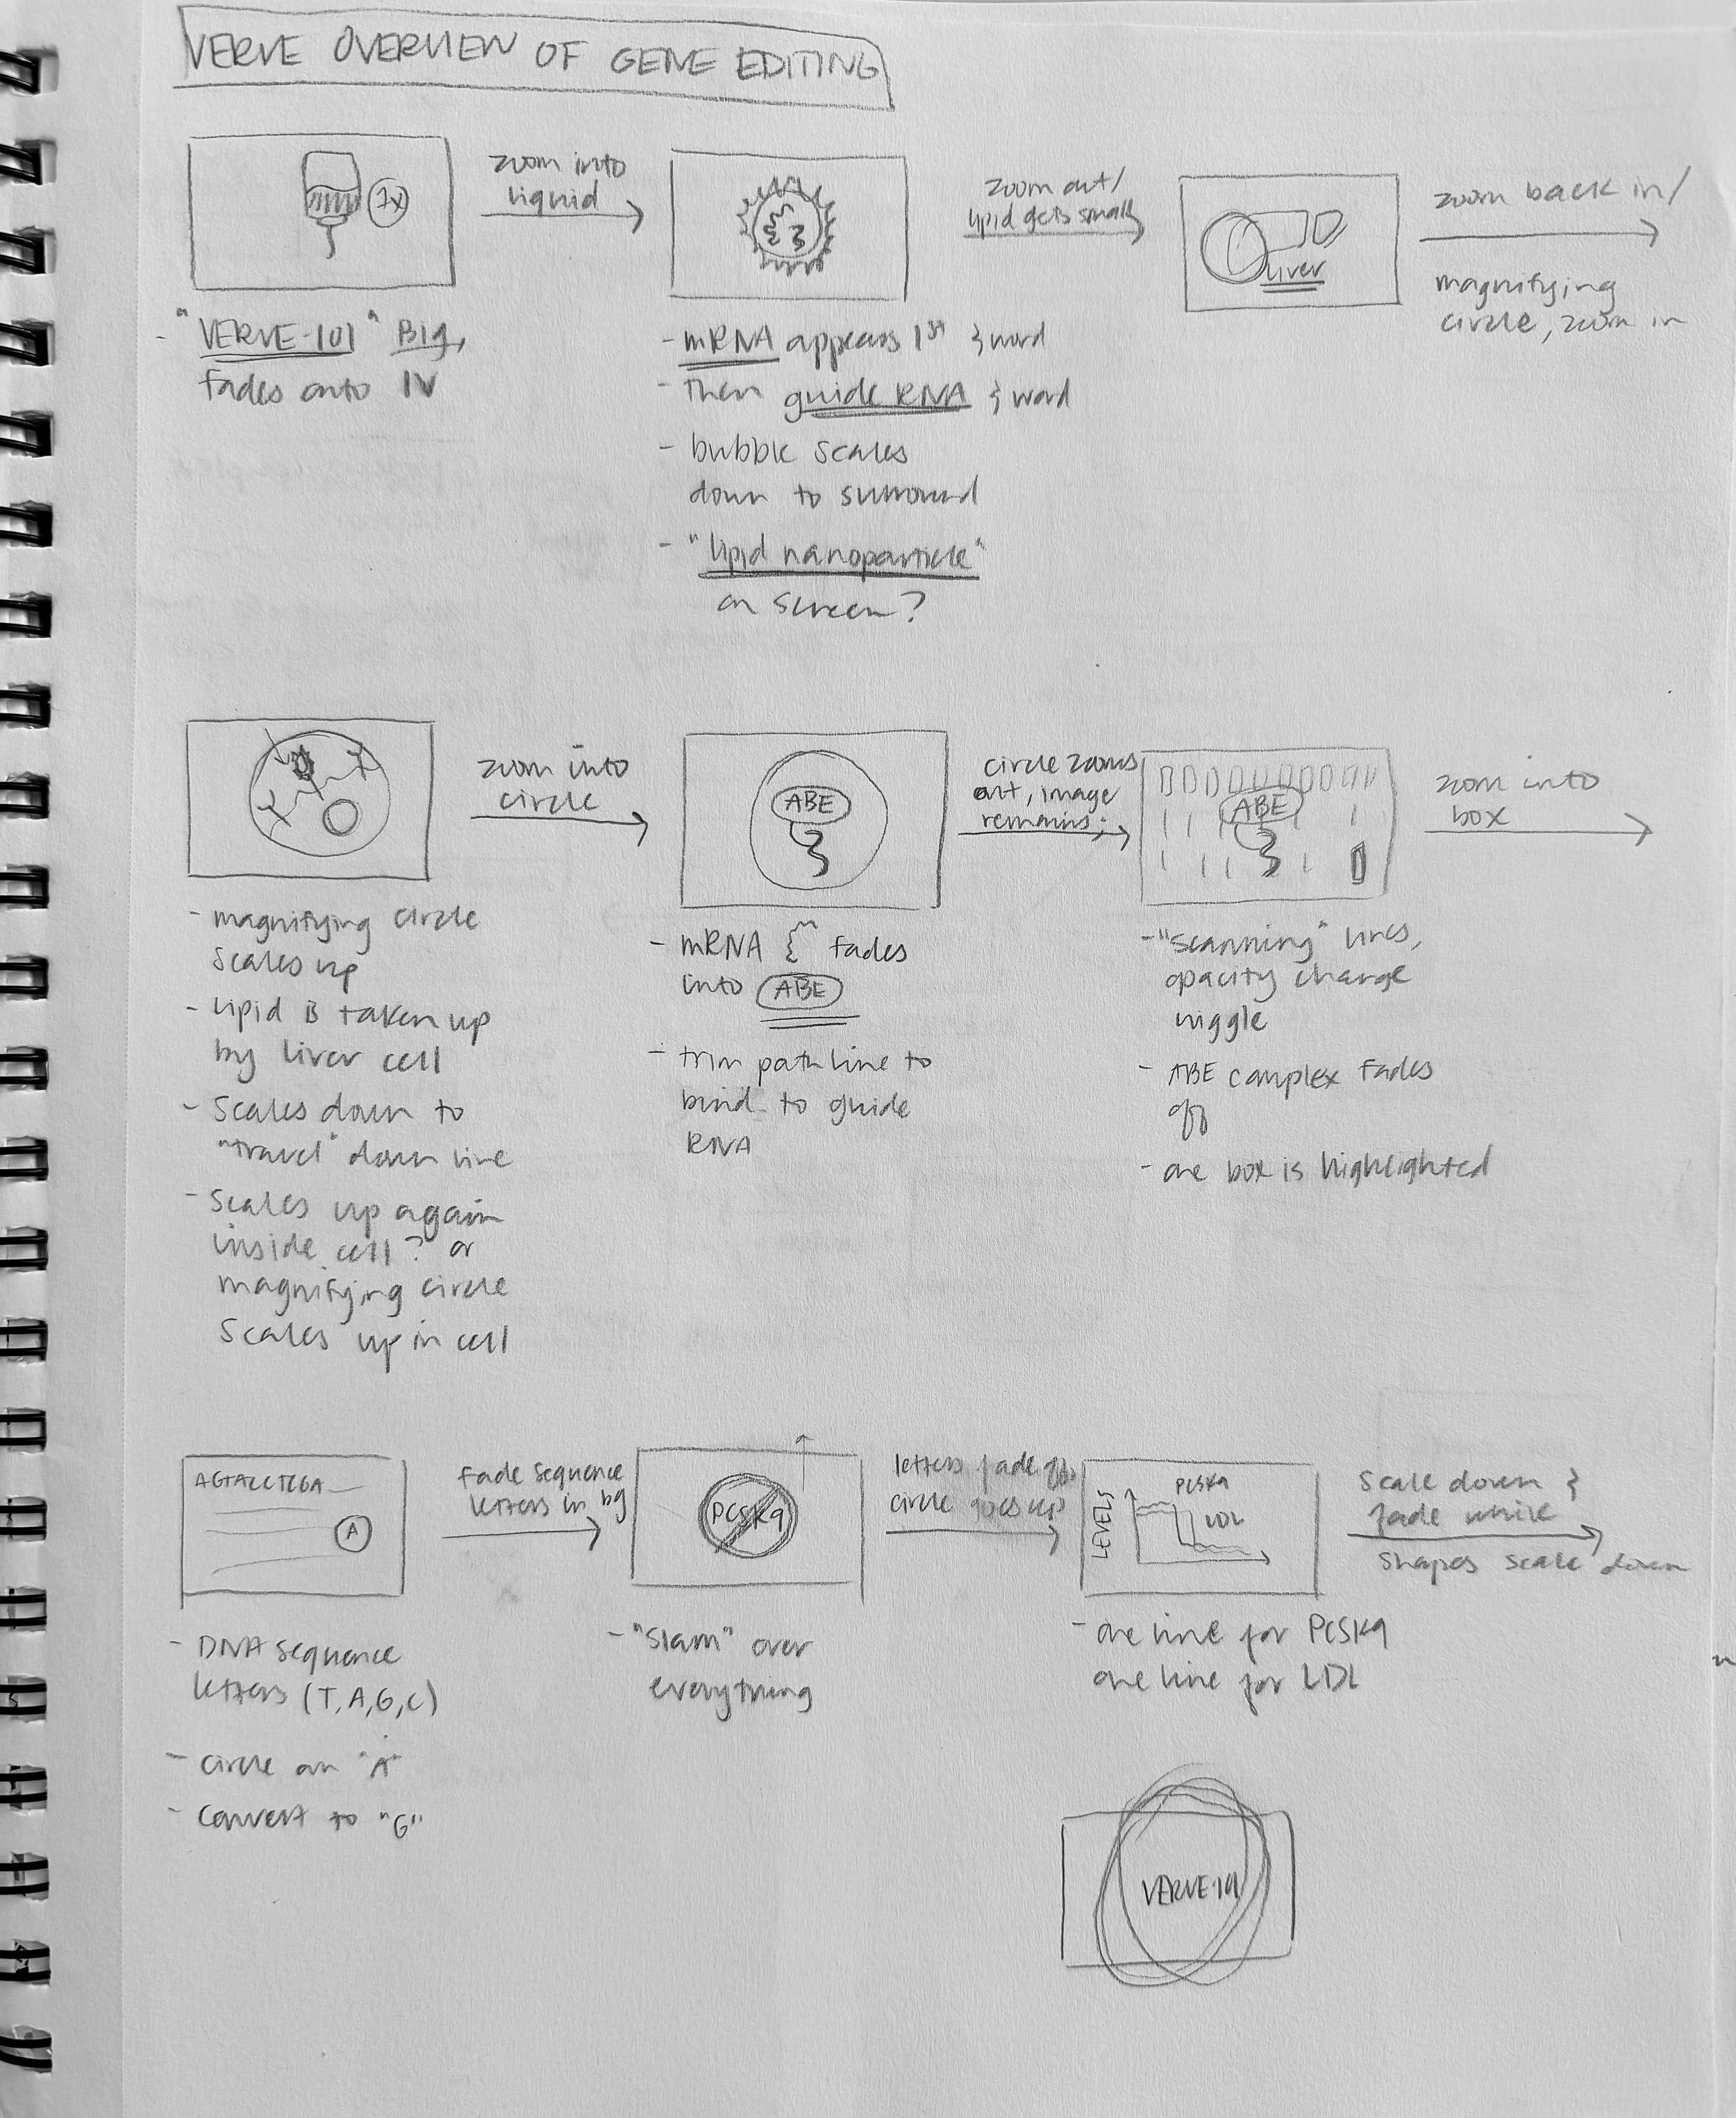 VERVE OVERVIEW OF GENE EDITING
1x
zoom into
liquid
zoom out/
lipid gets small
liver
zoom back in/
magnifying
circle, zoom in
- "VERVE-101" Big,
fades onto IV
- mRNA appears 1st & word
- then guide RNA & word
- bubble scales
down to surround
- "lipid nanoparticle"
on screen?
zoom into
circle
ABE
circle zooms
out, image
remains
ABE
zoom into
box
- magnifying circle
scales up
- lipid is taken up
by liver cell
- scales down to
"travel" down line
- scales up again
inside cell? or
magnifying circle
scales up in cell
- mRNA fades
into ABE
- trim path line to
bind to guide
RNA
- "scanning" lines,
opacity change
wiggle
- ABE complex fades
off
- one box is highlighted
A
fade sequence
letters in bg
PCSK9
letters fade off,
circle goes up
LEVELS
PCSK9
LDL
scale down &
fade while
shapes scale down
- DNA sequence
letters (T, A, G, C)
- circle an "A"
- convert to "G"
- "slam" over
everything
- one line for PCSK9
one line for LDL
VERVE-101